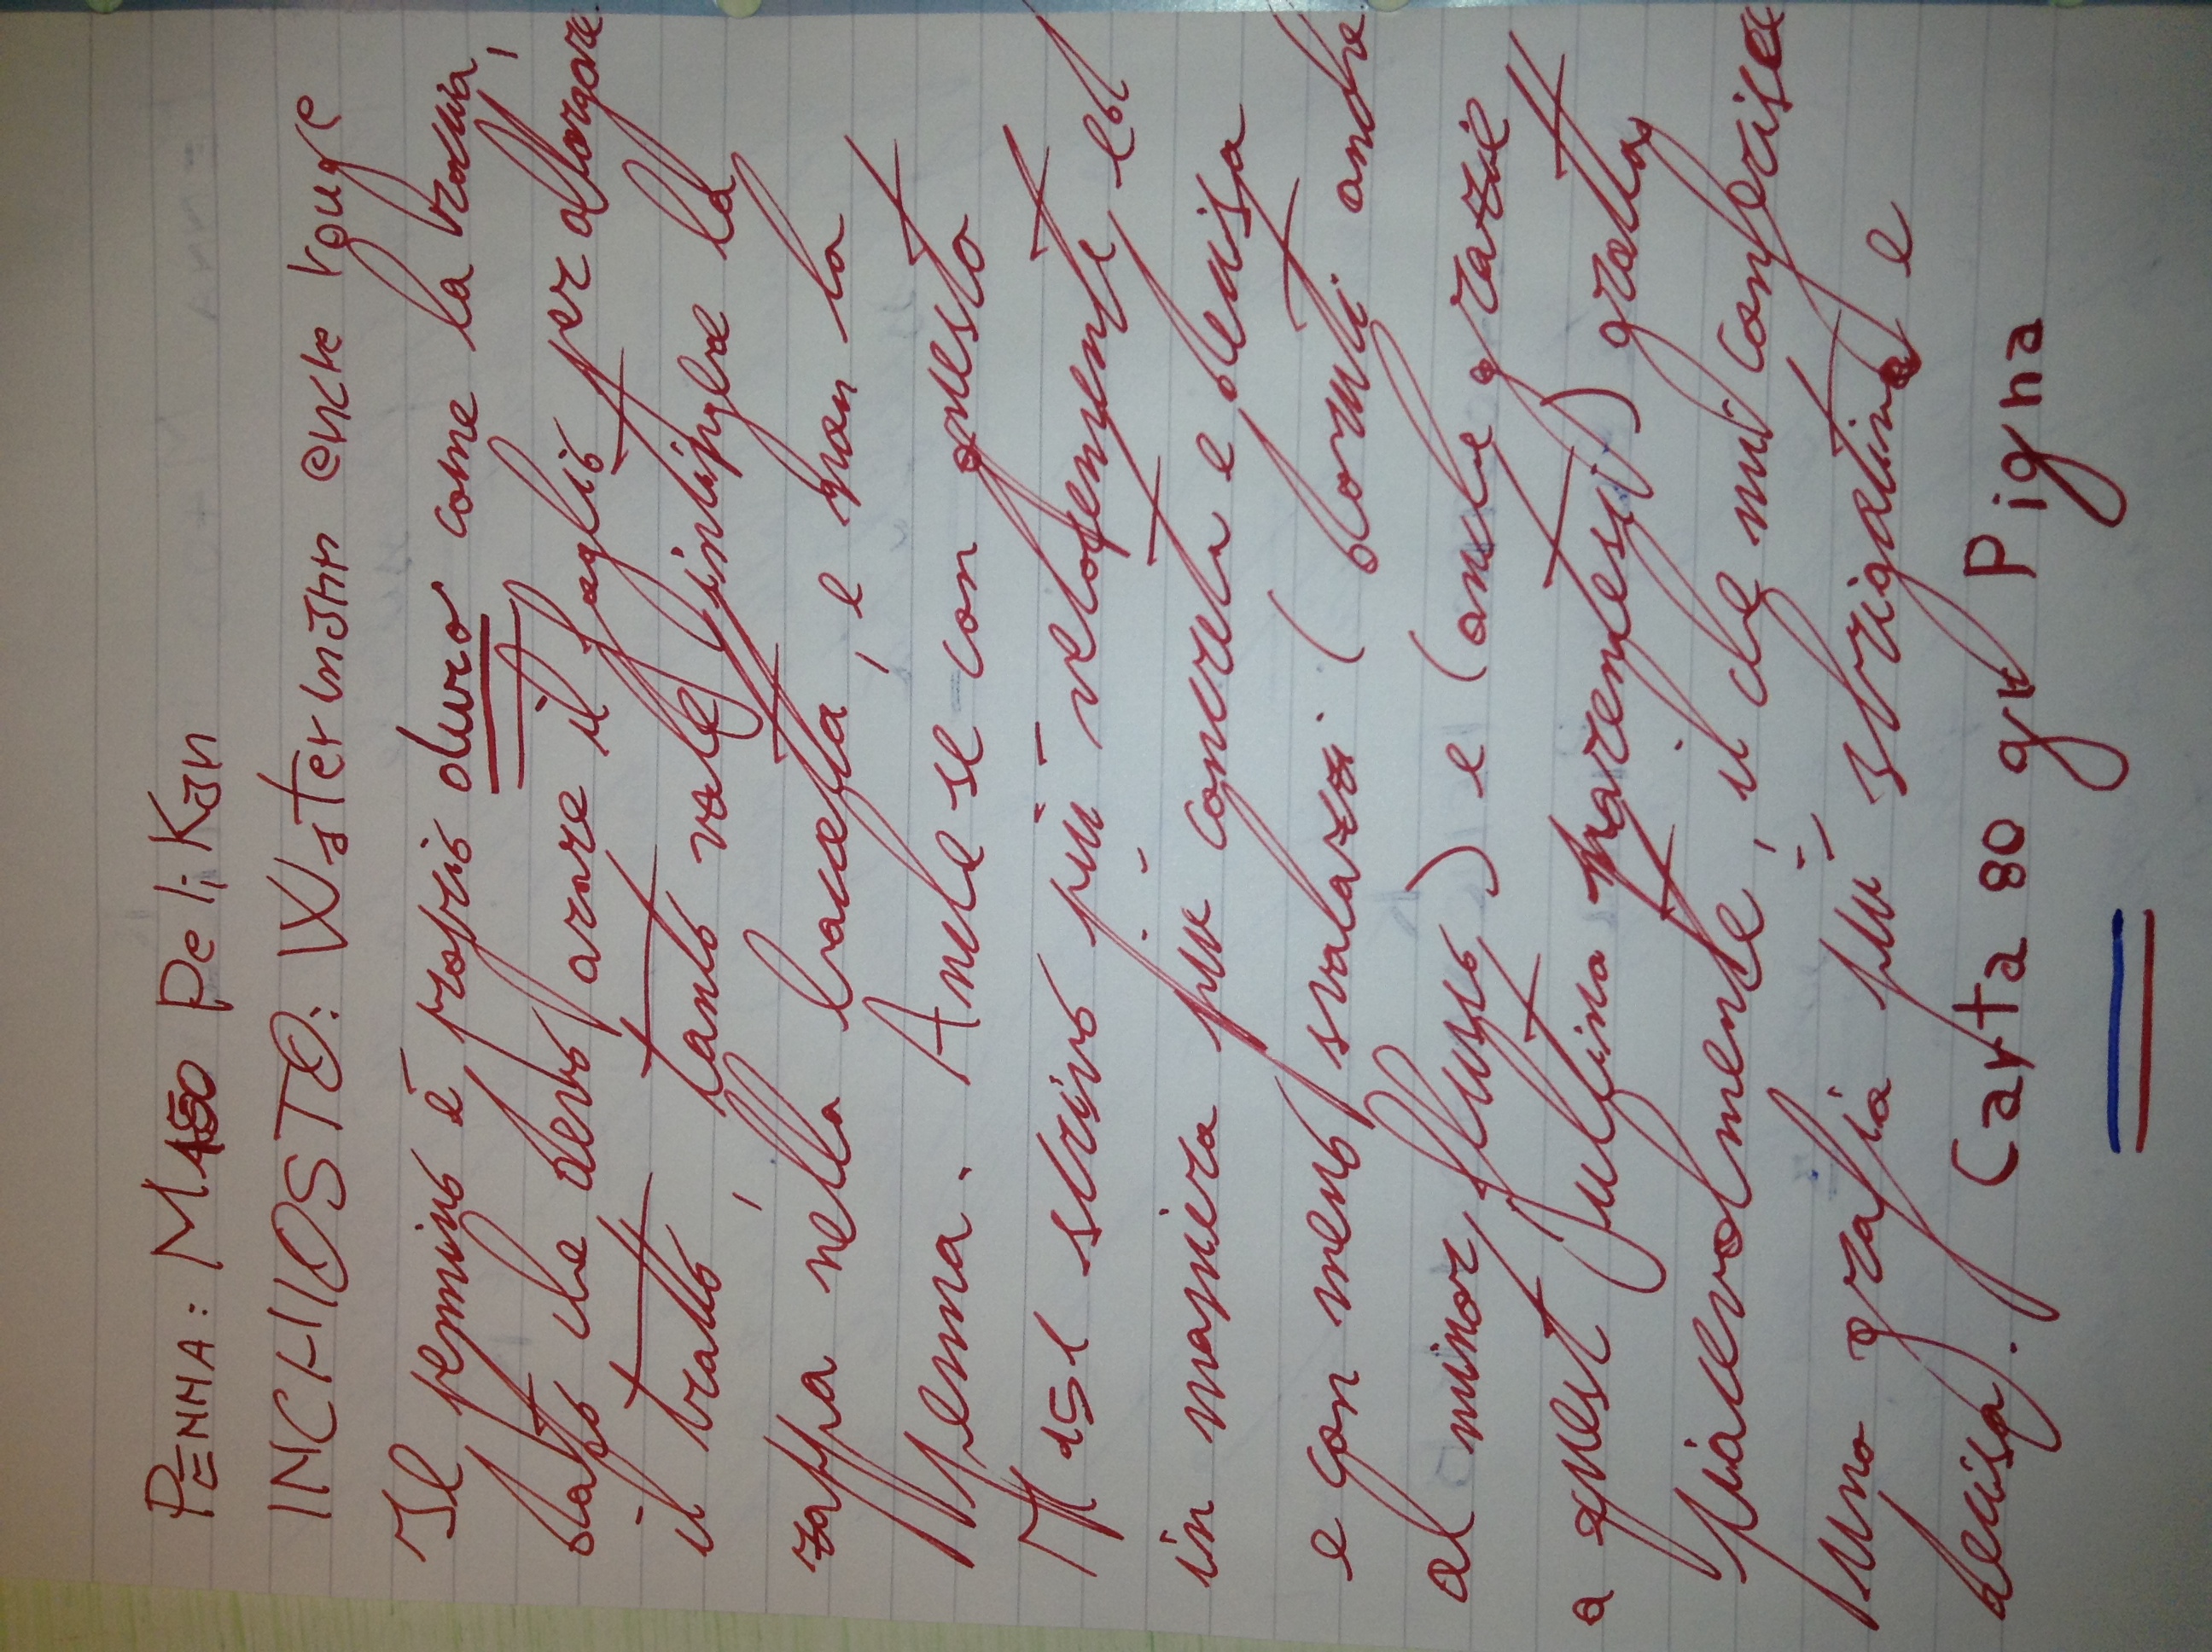 PENNA: M150 PeliKan
INCHIOSTO: Waterman encre rouge
Il pennino è proprio duro come la vanga,
dato che devo arare il foglio per allargare
il tratto, tanto vale intingere la
zappa nella boccetta, e non la
penna. Anche se con questo
M 151 scrivo più velocemente ed
in maniera più concreta e decisa
e con meno svolazzi (dovuti anche
al minor flusso) e (anche grazie
a quest'ultima parentesi) gratta
piacevolmente, il che mi conferisce
una grafia più "sbrigativa" e
decisa. Carta 80 gr Pigna